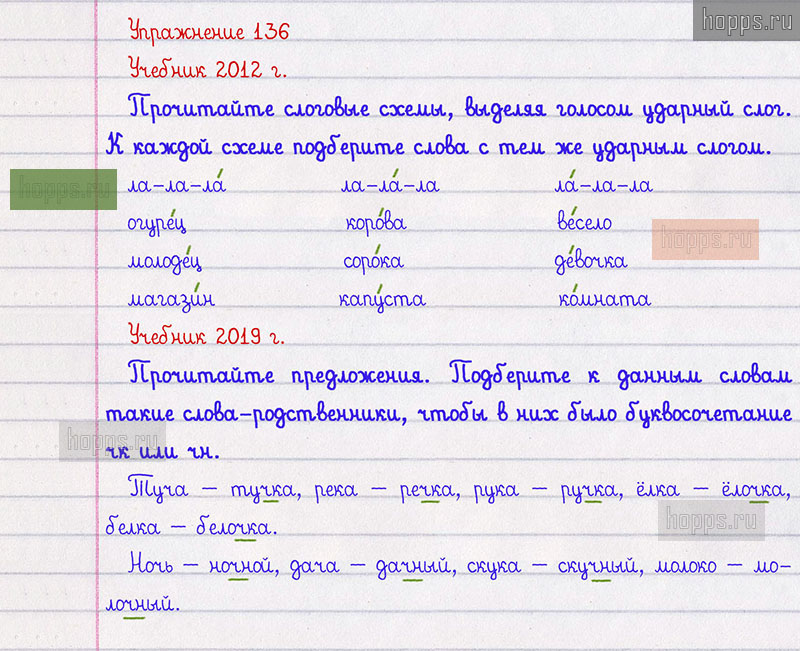 hopps.ru
Упражнение 136
Учебник 2012 г.
Прочитайте слоговые схемы, выделяя голосом ударный слог.
К каждой схеме подберите слова с тем же ударным слогом.
hopps.ru
ла-ла-ла́ ла-ла́-ла ла́-ла-ла
огуре́ц коро́ва ве́село
hopps.ru
молоде́ц соро́ка де́вочка
магази́н капу́ста ко́мната
Учебник 2019 г.
Прочитайте предложения. Подберите к данным словам
такие слова-родственники, чтобы в них было буквосочетание
hopps.ru
чк или чн.
Туча – тучка, река – речка, рука – ручка, ёлка – ёлочка,
hopps.ru
белка – белочка.
Ночь – ночной, дача – дачный, скука – скучный, молоко – мо-
лочный.